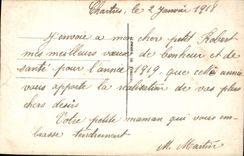 Chartres, le 2 Janvier 1918
J'envoie a mon cher petit Robert
mes meilleurs vœux de bonheur et de
santé pour l'année 1919, que cette année
vous apporte la réalisation de vos plus
chers désirs
Votre petite maman qui vous em-
brasse tendrement
M. Martin